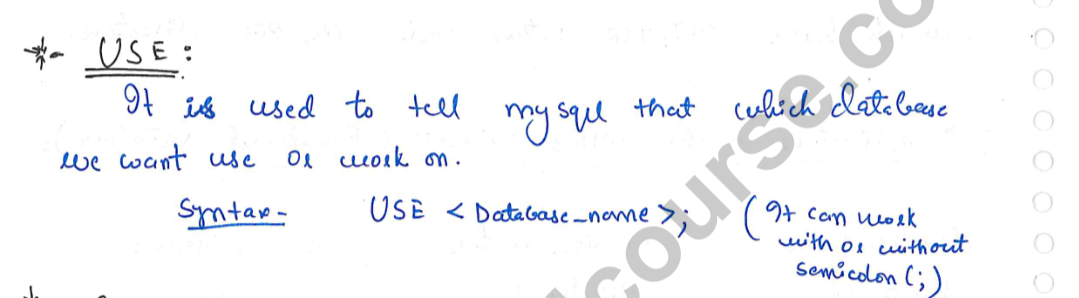 *- USE :
It is used to tell mysql that which database
we want use or work on.
Syntax- USE < Database_name >; (It can work
with or without
semicolon (;)
course.co